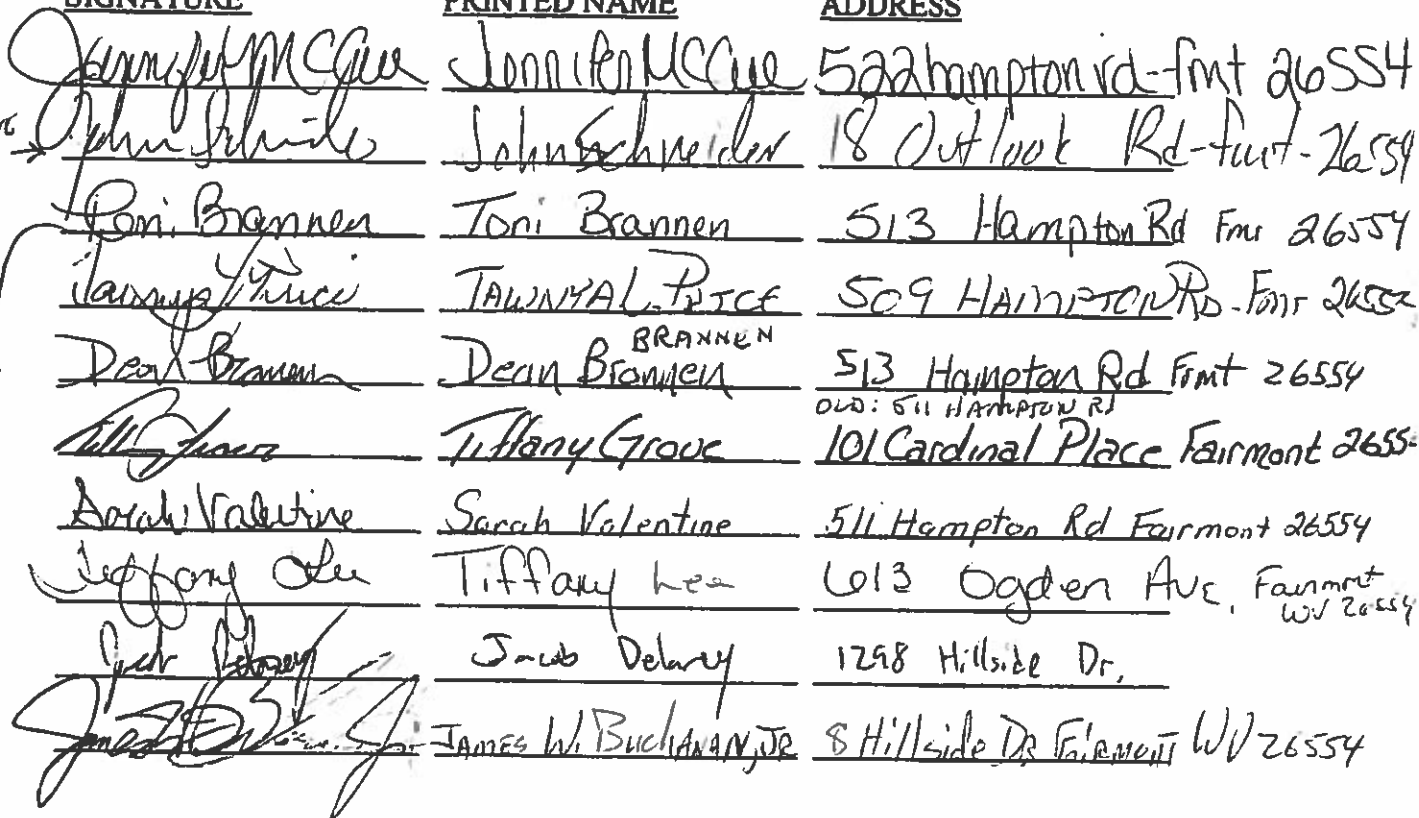 SIGNATURE PRINTED NAME ADDRESS
Jennifer McCue Jennifer McCue 522 hampton rd-fmt 26554
John Schneider John Schneider 18 Outlook Rd-fmt-26554
Toni Brannen Toni Brannen 513 Hampton Rd Fmt 26554
Tawnya L Price TAWNYA L. PRICE 509 HAMPTON RD-Fmt 26552
BRANNEN
Dean Brannen Dean Brannen 513 Hampton Rd Frmt 26554
OLD: 511 HAMPTON RD
Tiffany Grove 101 Cardinal Place Fairmont 2655
Sarah Valentine Sarah Valentine 511 Hampton Rd Fairmont 26554
Tiffany Lee Tiffany Lee 613 Ogden Ave, Fairmont
WV 26554
Jacob Delaney Jacob Delaney 1298 Hillside Dr,
JAMES W. BUCHANAN, JR 8 Hillside DR FAIRMONT WV 26554